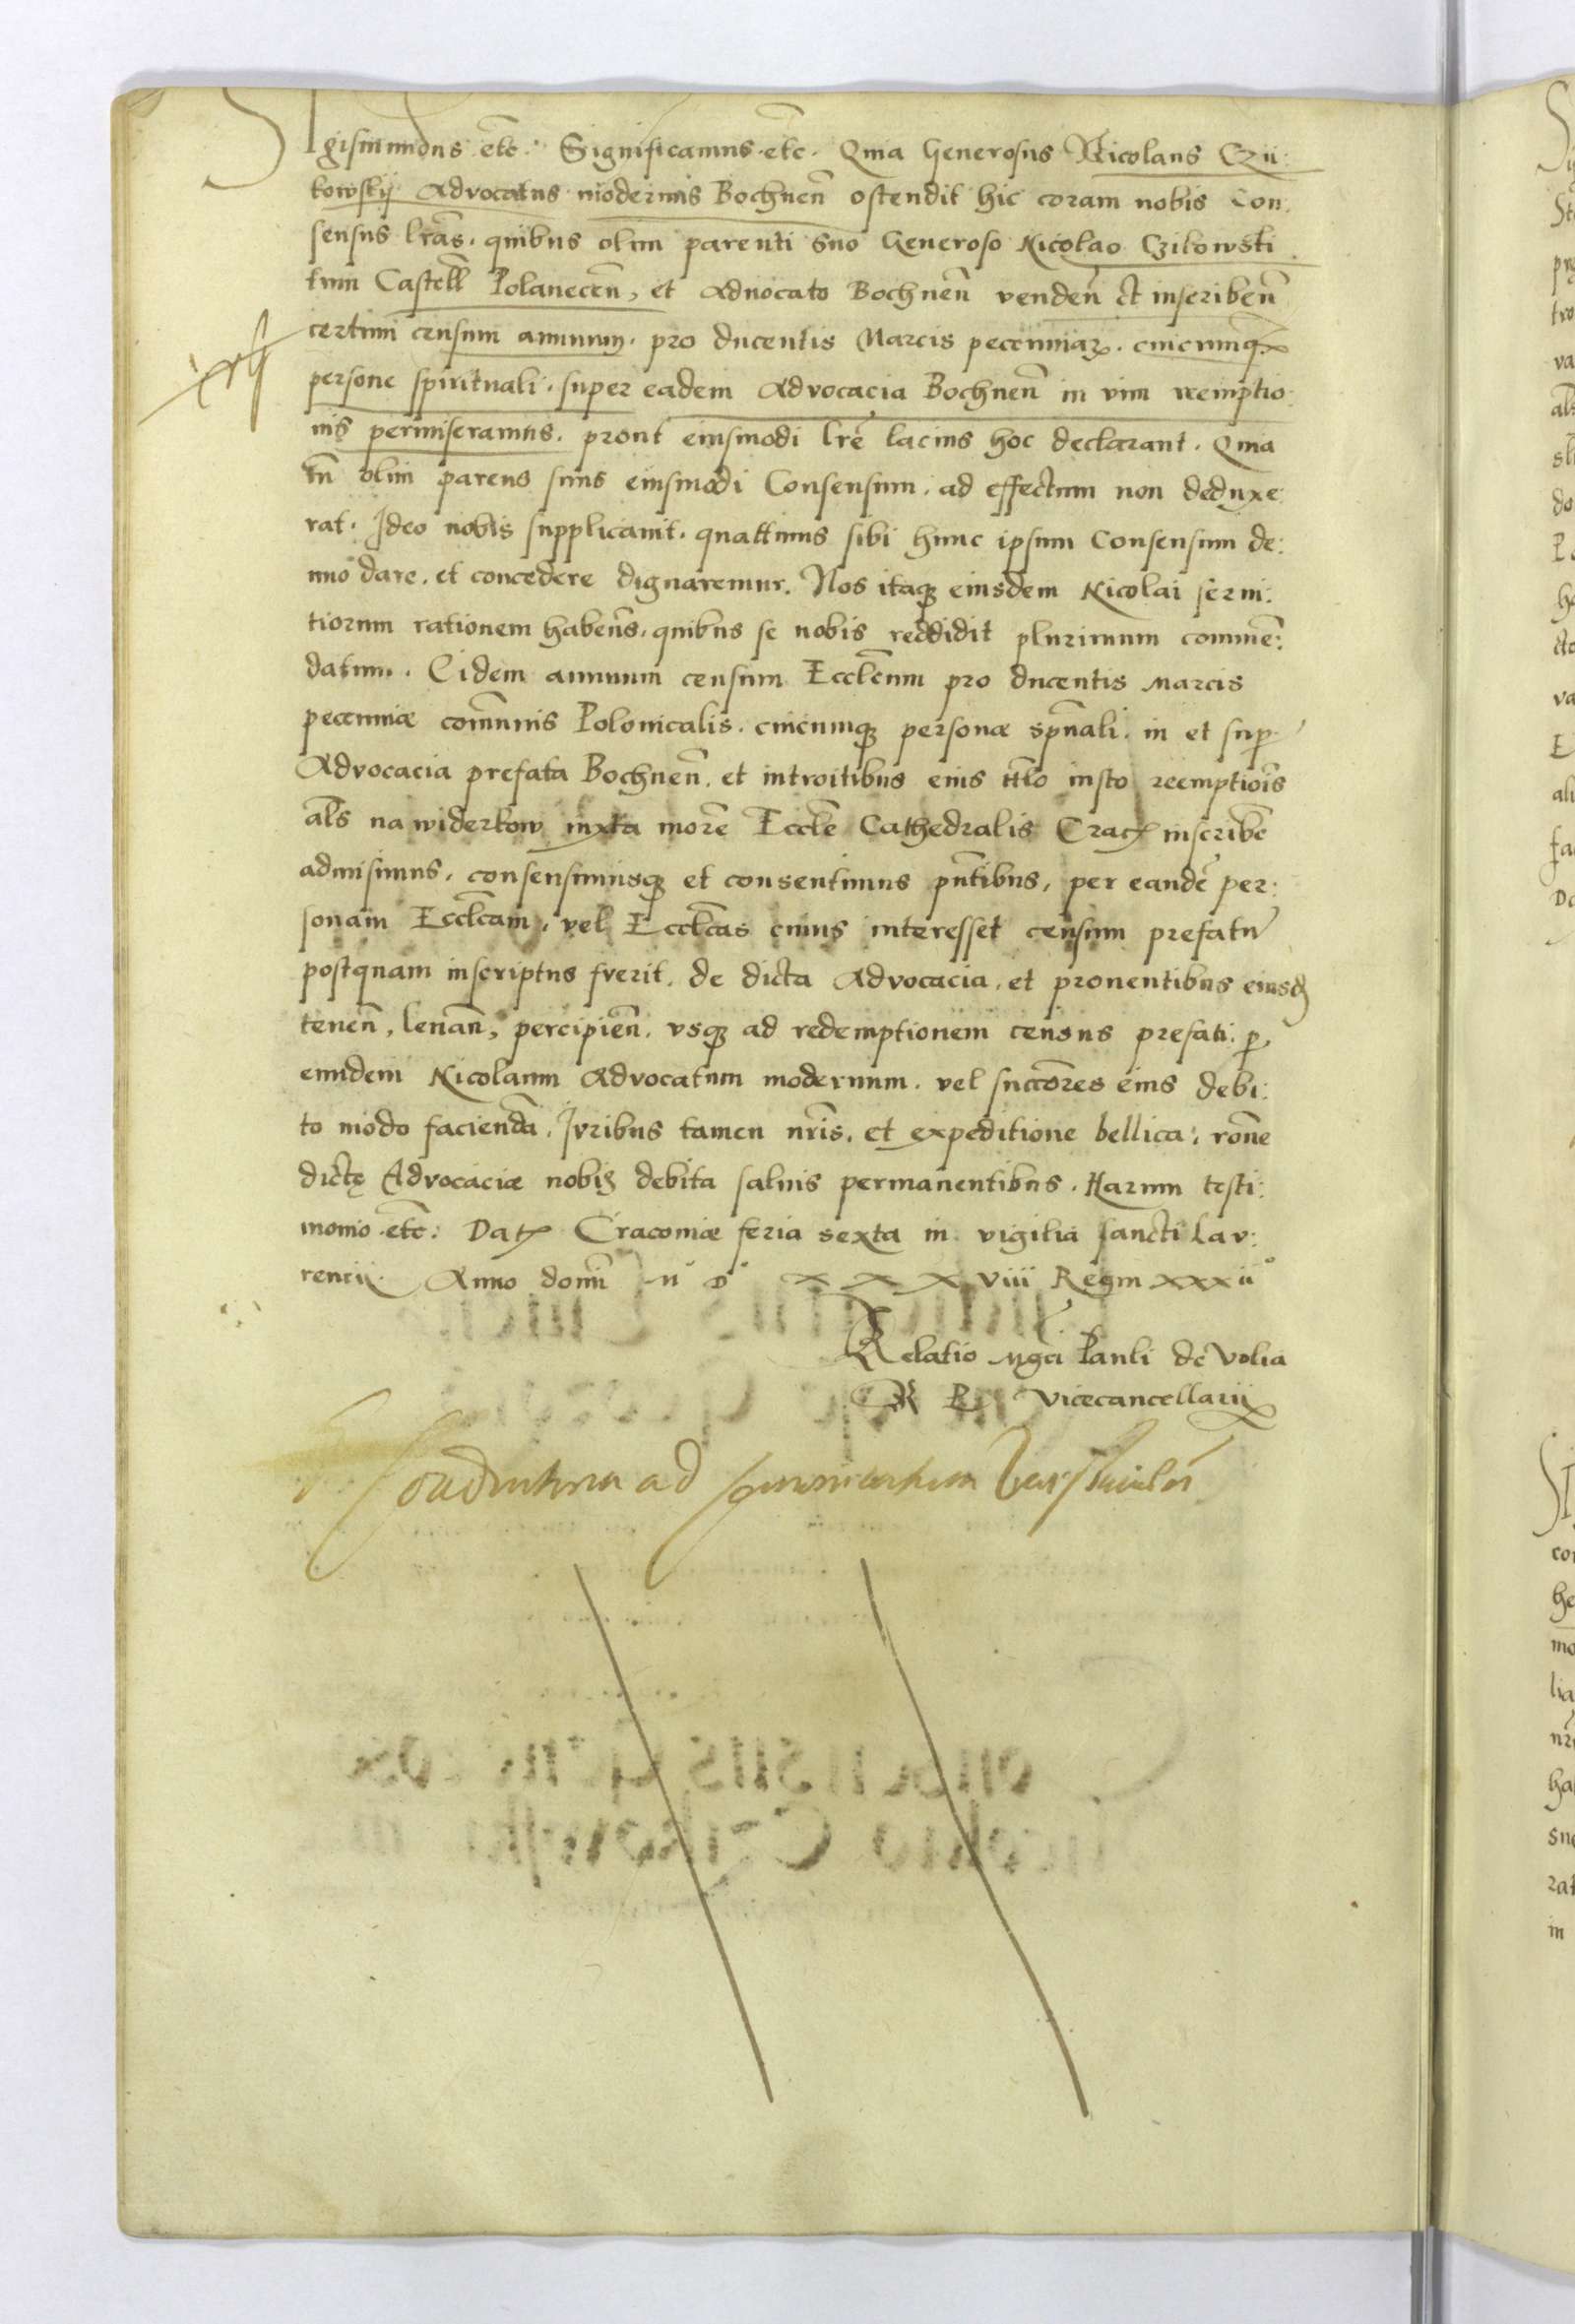 Sigismundus etc̃. Significamus etc̃. Quia Generosus Nicolaus Czi:
kowskÿ Advocatus modernus Bochneñ ostendit hic coram nobis Con:
sensus lr̃as, quibus olim parenti suo Generoso Nicolao Czikowski
tum Castell̃ Polaneceñ, et Aduocato Bochneñ vendeñ et inscribeñ
certum censum annuum, pro ducentis Marcis pecuniaꝝ, cuicumqꝫ
persone spirituali, super eadem Advocacia Bochneñ in vim reemptio:
nis permiseramus, prout eiusmodi lr̃e lacius hoc declarant. Quia
tñ olim parens suus eiusmodi Consensum, ad effectum non deduxe:
rat. Ideo nobis supplicauit, quattinus sibi hunc ipsum Consensum de:
nuo dare, et concedere dignaremur. Nos itaqꝫ eiusdem Nicolai serui:
tiorum rationem habeñs, quibus se nobis reddidit plurimum commẽ:
datum. Eidem annuum censum Eccl̃cum pro ducentis Marcis
pecuniæ com̃unis Polonicalis, cuicumqꝫ personæ sp̃uali, in et sup̱
Advocacia prefata Bochneñ, et introitibus eius tt̃lo iusto reemptiõis
al̃s na widerkow iuxta morẽ Eccl̃e Cathedralis Crac̃ inscribẽ
admisimus, consensimusqꝫ et consentimus pñtibus, per eandẽ per:
sonam Eccl̃cam, vel Eccl̃cas cuius interesset censum prefatũ
postquam inscriptus fverit, de dicta Advocacia, et prouentibus eiusd̃
teneñ, leuañ, percipieñ, vsqꝫ ad redemptionem census prefati, ꝑ
eundem Nicolaum Advocatum modernum, vel succc̃ores eius debi:
to modo faciendã, Ivribus tamen nr̃is, et expeditione bellica, rõne
dictę Advocaciæ nobis debita saluis permanentibus. Harum testi:
monio etc̃: Dat̃ Cracouiæ feria sexta in vigilia sancti Lav:
rencii. Anno domĩ M° D° XXXviii Regni xxxii°
Relatio Mgc̃i Pauli de Volia
R P Vicecancellarii